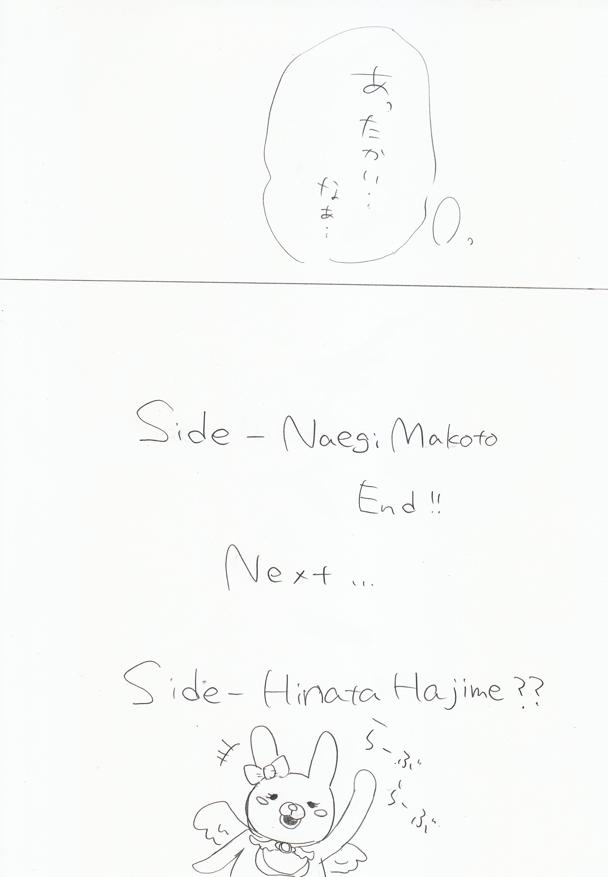 あったかい…
なぁ…
Side - Naegi Makoto
End!!
Next...
Side - Hinata Hajime??
らーぶ
らーぶ